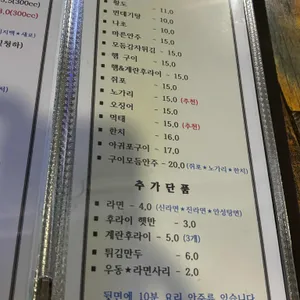 (300cc)
3.0(300cc)
황도 - 11.0
번데기탕 - 20.0
나초 - 10.0
마른안주 - 15.0
모듬감자튀김 - 15.0
햄 구이 - 15.0
햄&계란후라이 - 15.0
쥐포 - 15.0
노가리 - 15.0 (추천)
오징어 - 15.0
먹태 - 15.0 (추천)
한치 - 16.0
아귀포구이 - 17.0
구이모듬안주 - 20.0 (쥐포★노가리★한치)
추 가 단 품
라면 - 4.0 (신라면★진라면★안성탕면)
후라이 햇반 - 3.0
계란후라이 - 5.0 (3개)
튀김만두 - 6.0
우동★라면사리 - 2.0
뒷면에 10분 요리 안주로 있습니다